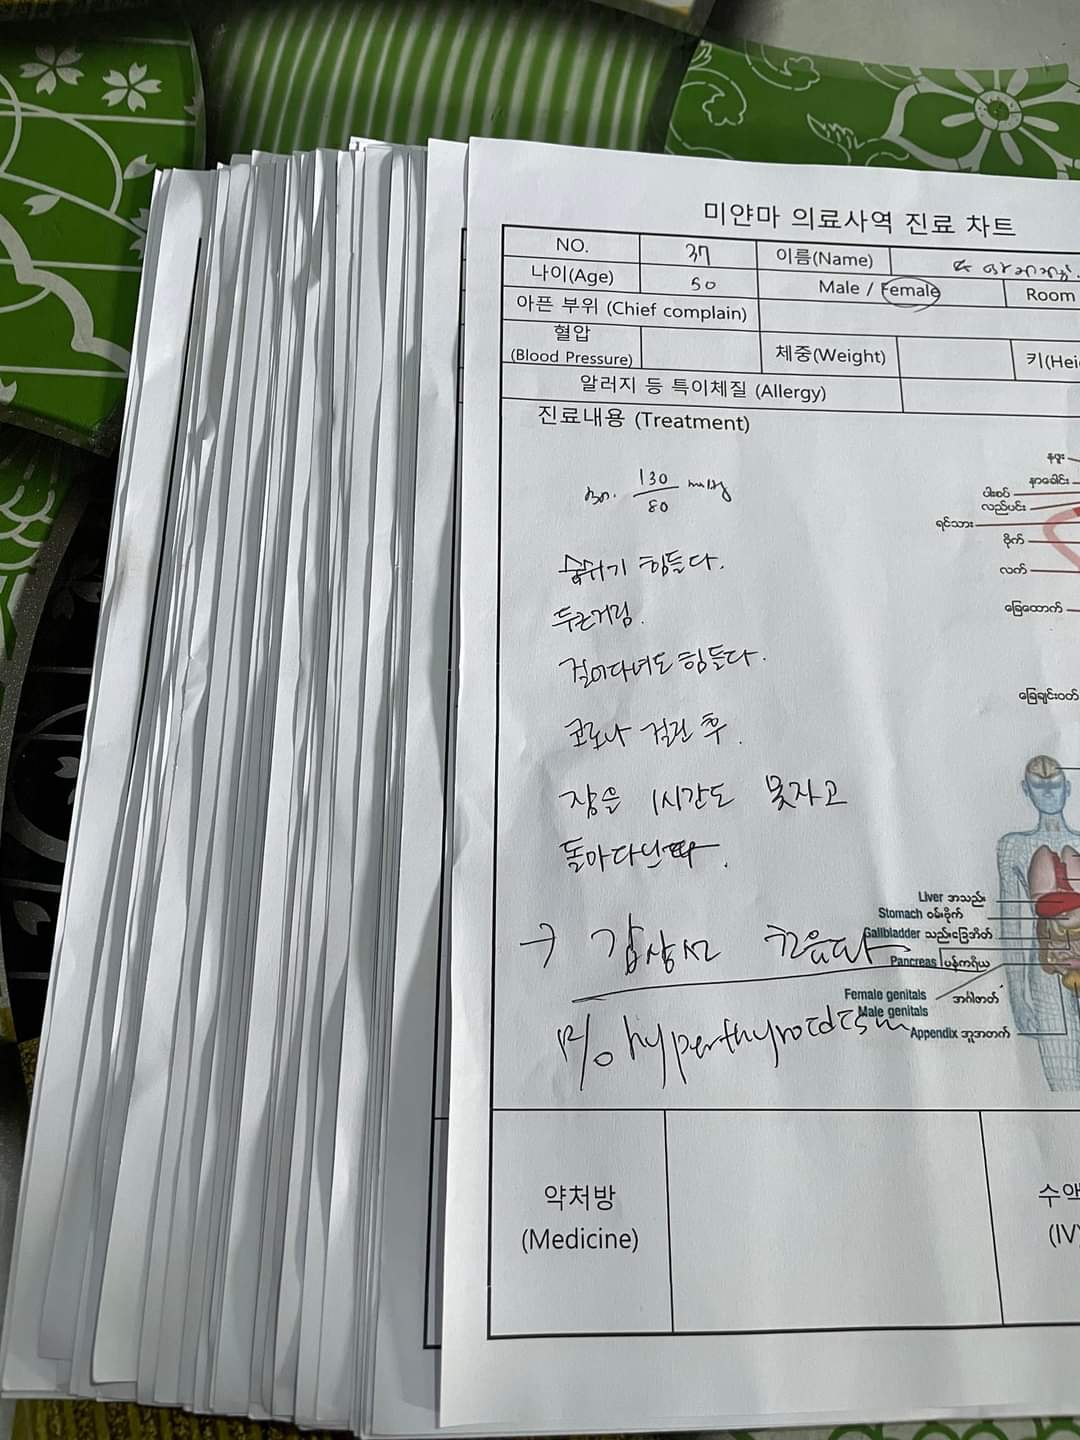 미얀마 의료사역 진료 차트
NO. 37 이름(Name)
나이(Age) 50 Male / Female Room
아픈 부위 (Chief complain)
혈압 (Blood Pressure) 체중(Weight) 키(Hei
알러지 등 특이체질 (Allergy)
진료내용 (Treatment)
130/80 mmHg
숨쉬기 힘들다.
두근거림.
걸어다녀도 힘들다.
코로나 걸린 후.
잠을 1시간도 못자고
돌아다닌다.
→ 갑상선
R/o hyperthyroidism
နဖူး
နာခေါင်း
ပါးစပ်
လည်ပင်း
ရင်သား
ဗိုက်
လက်
ခြေထောက်
ခြေချင်းဝတ်
Liver အသည်း
Stomach ဝမ်းဗိုက်
Gallbladder သည်းခြေအိတ်
Pancreas ပန်ကရိယ
Female genitals
Male genitals
အင်္ဂါဇာတ်
Appendix အူအတက်
약처방
(Medicine)
수액
(IV)